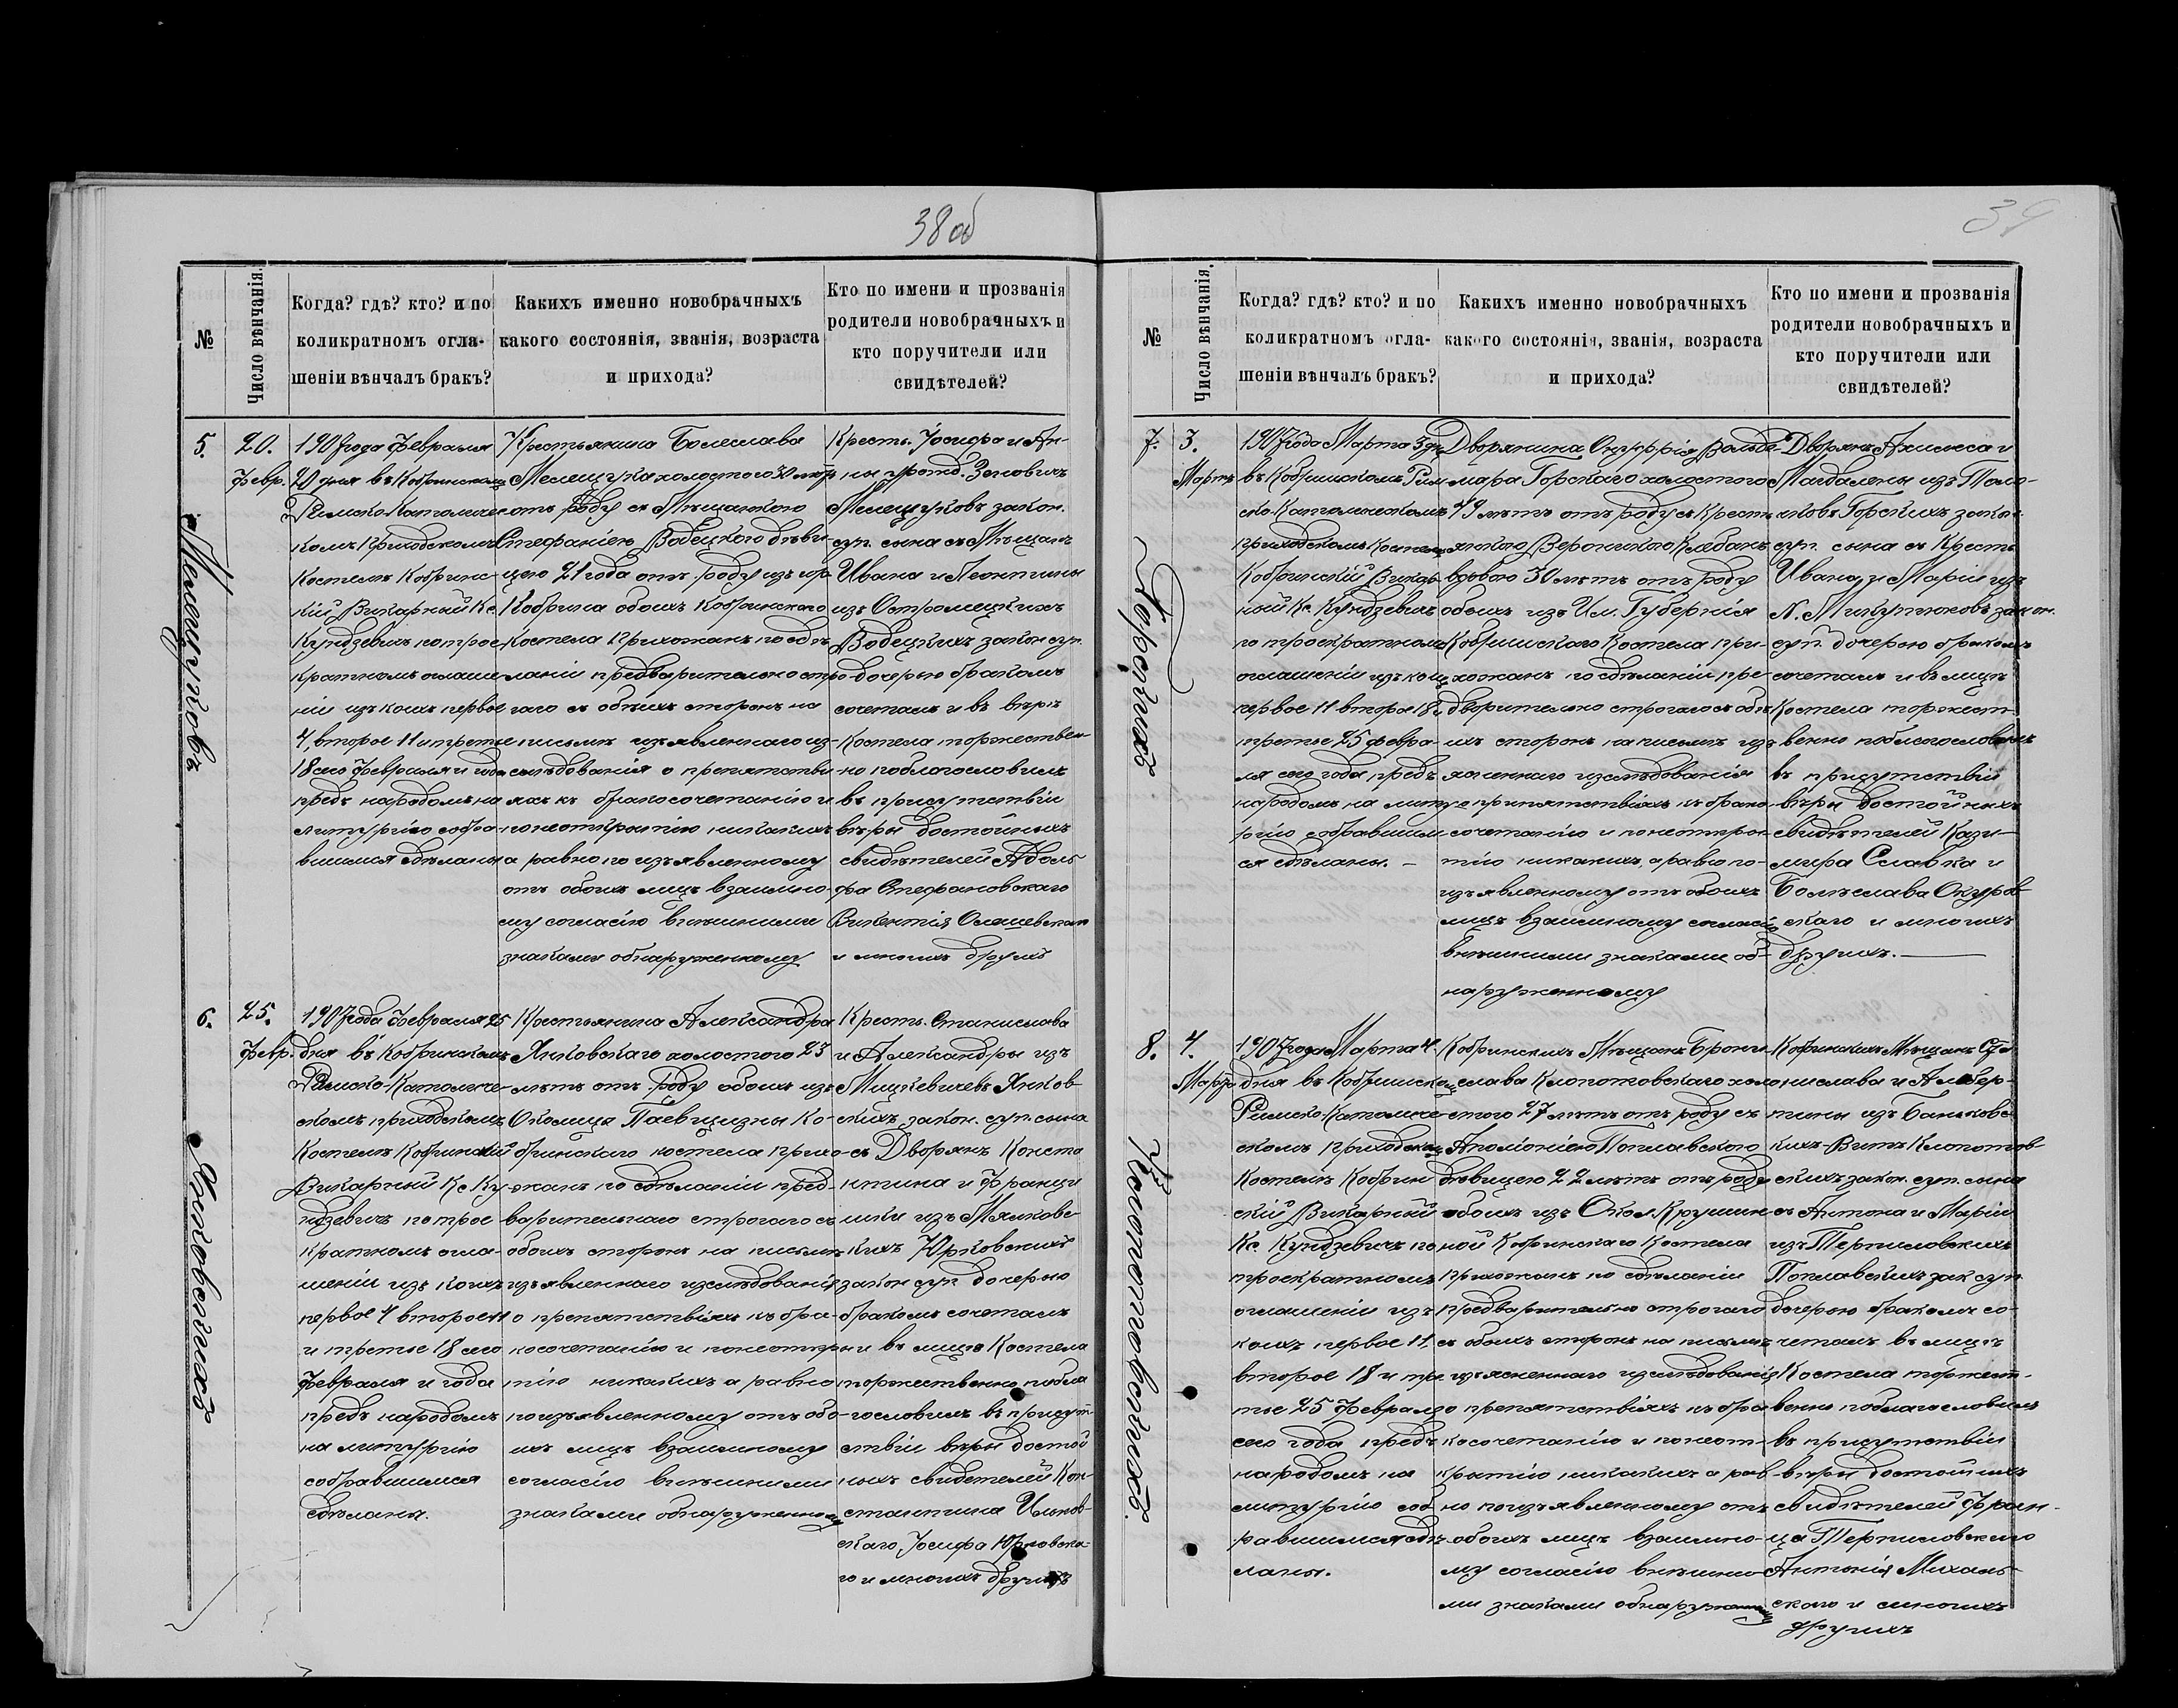 38 об
№
Число вѣнчанія.
Когда? гдѣ? кто? и по
коликратномъ огла-
шеніи вѣнчалъ бракъ?
Какихъ именно новобрачныхъ
какого состоянія, званія, возраста
и прихода?
Кто по имени и прозванія
родители новобрачныхъ и
кто поручители или
свидѣтелей?
5.
Мелещуковъ
20.
Февр.
1907 года Февраля
20 дня въ Кобринскомъ
Римско-Католичес
комъ Приходскомъ
Костелѣ Кобринс-
кій Викарный Кс.
Кундзевичъ по трое
кратномъ оглаше
ніи изъ коихъ первое
4, второе 11 и третье
18 сего Февраля и года
предъ народомъ на
литургію собра-
вшимся сдѣланы
Крестьянина Болеслава
Мелещука холостого 30 лѣтъ
отъ роду съ Мѣщанкою
Стефаніею Водецкою дѣви-
цею 21 года отъ роду изъ гор.
Кобрина обоихъ Кобринского
Костела Прихожанъ по сдѣ
ланіи предварительно стро
гаго съ обѣихъ сторонъ на
письмѣ изъявленнаго из-
слѣдованія о препятстві
яхъ къ бракосочетанію и
по неоткрытію никакихъ
а равно по изъявленному
отъ обоихъ лицъ взаимно-
му согласію внѣшними
знаками обнаруженному
Кресть. Іосифа и Ан-
ны урожд. Зановичъ
Мелещуковъ закон.
суп. сына съ Мѣщанъ
Ивана и Леонтины
изъ Остромецкихъ
Водецкихъ закон суп.
дочерью бракомъ
сочеталъ и въ
Костела торжествен-
но поблагословилъ
въ присутствіи
вѣры достойныхъ
свидѣтелей Адоль-
фа Стефановскаго
Викентія Олешевскаго
и многихъ другихъ
6.
Янковскихъ
25.
Февр.
1907 года Февраля 25
дня въ Кобринскомъ
Римско-Католиче-
скомъ приходскомъ
Костелѣ Кобринскій
Викарный Кс Ку-
ндзевичъ по трое
кратномъ огла-
шеніи изъ коихъ
первое 4 второе 11
и третье 18 сего
Февраля и года
предъ народомъ
на литургію
собравшимся
сдѣланы.
Крестьянина Александра
Янковскаго холостого 23
лѣтъ отъ роду обоихъ изъ
Околица Паевщизны Ко-
бринскаго костела прихо-
жанъ по сдѣланіи пред-
варительнаго строгаго съ
обоихъ сторонъ на письмѣ
изъявленнаго изслѣдованія
о препятствіяхъ къ бра-
косочетанію и по неоткры
тію никакихъ а равно
по изъявленному отъ обо-
ихъ лицъ взаимному
согласію внѣшними
знаками обнаруженному
Кресть. Станислава
и Александры изъ
Мицкевичевъ Янков
скихъ закон. суп. сына
съ Дворянъ Конста
нтина и Францi
шки изъ Мялковс
кихъ Юрковскихъ
закон суп дочерью
бракомъ сочеталъ
и въ лицѣ Костела
торжественно побла
гословилъ въ присут-
ствіи вѣры достой
ныхъ свидетелей Кон-
стантина
скаго, Іосифа Юрковска-
го и многихъ другихъ
39
№
Число вѣнчанія.
Когда? гдѣ? кто? и по
коликратномъ огла-
шеніи вѣнчалъ бракъ?
Какихъ именно новобрачныхъ
какого состоянія, званія, возраста
и прихода?
Кто по имени и прозванія
родители новобрачныхъ и
кто поручители или
свидѣтелей?
7.
Горскихъ.
3.
Мартъ
1907 года Марта 3 дня
въ Кобринскомъ Рим
ско-Католическомъ
Приходскомъ Костелѣ
Кобринскій Викар-
ный Кс. Кундзевичъ
по троекратномъ
оглашеніи изъ коихъ
первое 11 второе 18 и
третье 25 февра-
ля сего года предъ
народомъ на литу
ргію собравшим
ся сдѣланы. —
Дворянина Онуфрія Вольде
мара Горскаго холостого
49 лѣтъ отъ роду съ Кресть
янкою Вероникою Клебанъ
вдовою 30 лѣтъ отъ роду
обоихъ изъ Им. Губернія
Кобринскаго Костела при-
хожанъ по сдѣланіи пре-
дварительно строгаго съ обѣ
ихъ сторонъ на письмѣ изъ
ясненнаго изслѣдованія
о припятствіяхъ къ брако
сочетанію и по неоткры
тію никакихъ, а равно по-
изъявленному отъ обоихъ
лицъ взаимному согласію
внѣшними знаками об-
наруженному
Дворянъ Ахилеса и
Магдалены изъ
Горскихъ закон.
суп. сына съ Кресть
Ивана и Маріи изъ
N. Микутюковъ закон.
суп. дочерью бракомъ
сочеталъ и въ лицѣ
Костела торжест-
венно поблагословилъ
въ присутствіи
вѣры достойныхъ
свидѣтелей Кази-
мира Славка и
Болѣслава Окуров
скаго и многихъ
другихъ. —
8.
Клопотовскихъ.
4.
Марта
1907 года Марта 4.
дня въ Кобринскомъ
Римско-Католиче-
скомъ Приходскомъ
Костелѣ Кобрин
скій Викарный
Кс. Кундзевичъ по
троекратномъ
оглашеніи изъ
коихъ первое 11,
второе 18 и тре
тье 25 Февраля
сего года предъ
народомъ на
литургію соб
равшимся сдѣ
ланы.
Кобринскихъ Мѣщанъ Брони-
слава Клопотовскаго холо
стого 27 лѣтъ отъ роду съ
Аполоніею Поплавскою
дѣвицею 22 лѣтъ отъ роду
обоихъ изъ Окол. Крушин
ной Кобринскаго Костела
прихожанъ по сдѣланіи
предварительно строгаго
съ обоихъ сторонъ на письмѣ
изъясненнаго изслѣдованія
о препятствіяхъ къ бра
косочетанію и по неот-
крытію никакихъ а рав-
но по изъявленному отъ
обоихъ лицъ взаимно-
му согласію внѣшни-
ми знаками обнаруженному
Кобринскихъ Мѣщанъ Ста
нислава и Альбер-
тины изъ Баньковс
кихъ-Витъ Клопотов
скихъ закон. суп. сына
съ Антона и Маріи
изъ Терпиловскихъ
Поплавскихъ зак суп
дочерью бракомъ со-
четалъ въ лицѣ
Костела торжест-
венно поблагословилъ
въ присутствіи
вѣры достойныхъ
свидѣтелей Фран-
ца Терпиловскаго
Антонія Михаль-
скаго и многихъ
другихъ